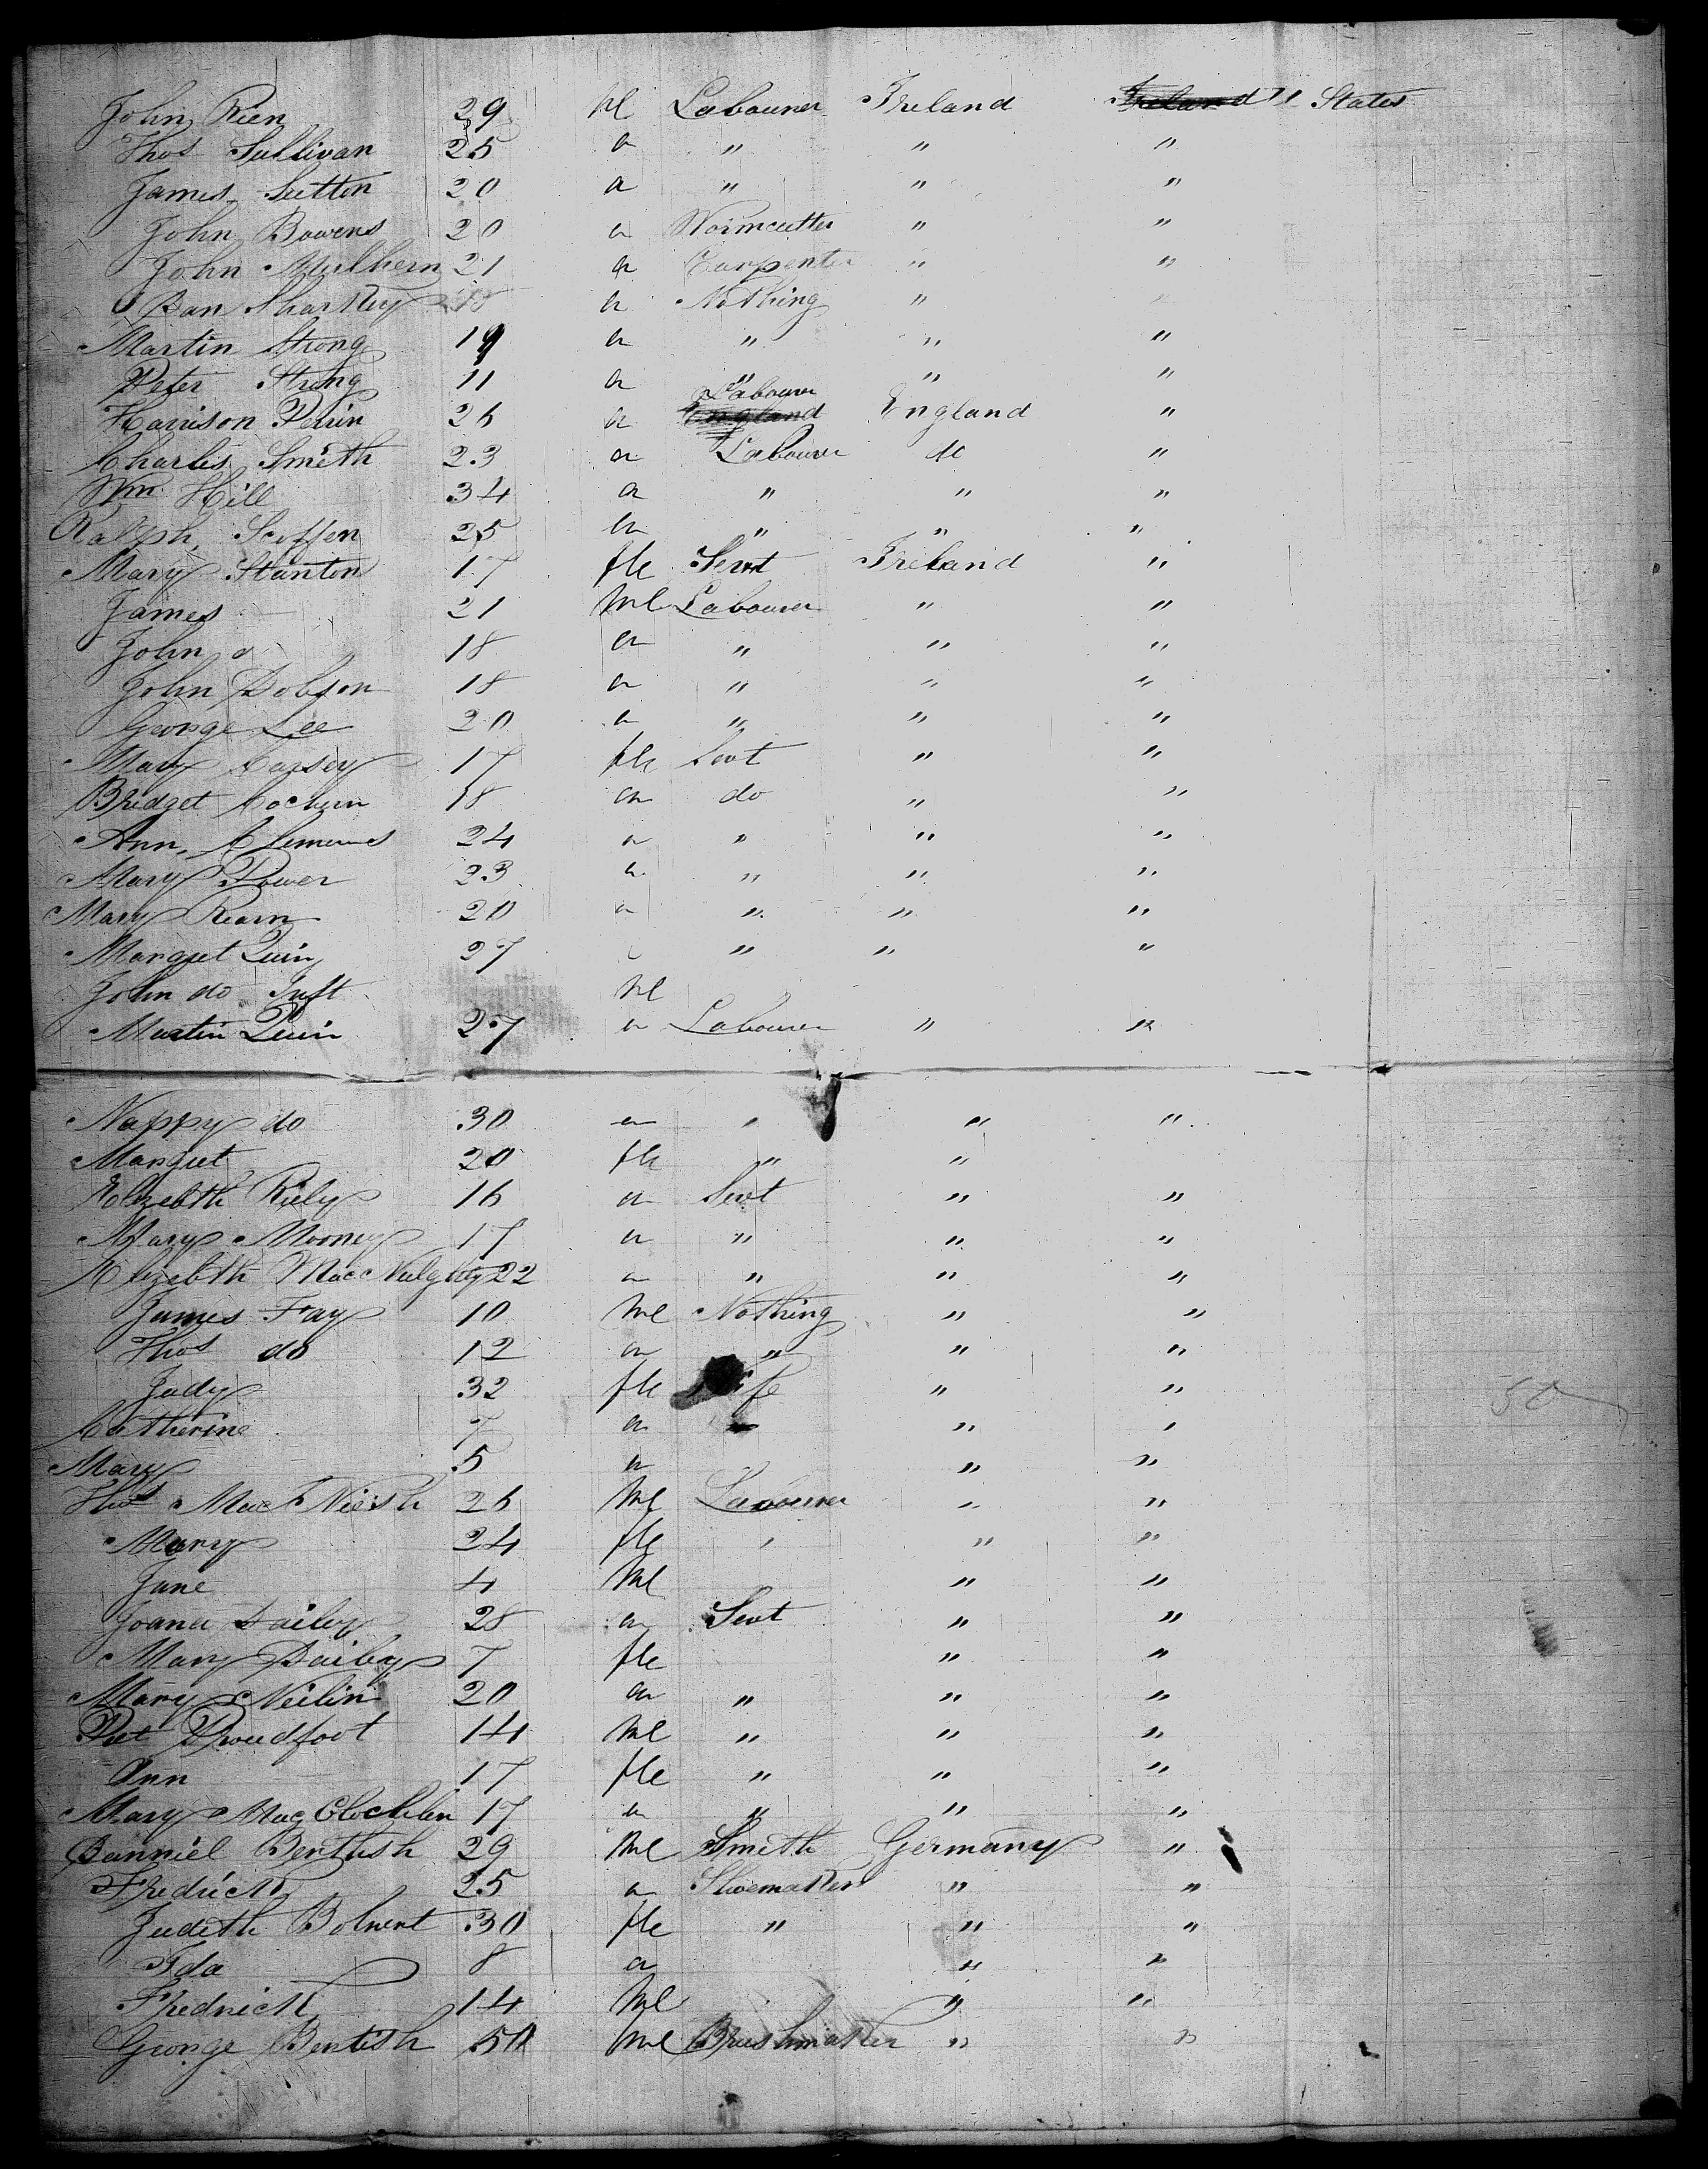 John Rien 29 Ml Labourer Ireland Ireland U States
Thos Sullivan 25 a " " "
James Sutton 20 a " " "
John Bowens 20 a Wormcutter " "
John Mulhern 21 a Carpenter " "
Dan Sharkey a Nothing " "
Martin Strong 19 a " " "
Peter Strong 11 a " " "
Labourer
Harrison Perrin 26 a England England "
Charles Smith 23 a Labourer do "
Wm. Hill 34 a " " "
Ralph 25 a " " "
Mary Stanton 17 fle Sevt Ireland "
James 21 Ml Labourer " "
John 18 a " " "
John Dobson 18 a " " "
George Lee 20 a " " "
Mary Carsey 17 fle Sevt " "
Bridget 18 a do " "
Ann 24 a " " "
Mary Power 23 a " " "
Mary Rearn 20 a " " "
Margret Quin 27 " " "
John do Inft Ml
Martin Quin 27 a Labourer " "
Nappy do 30 a " " "
Margret 20 fle " "
Elizebth Riely 16 a Sevt " "
Mary Mooney 17 a " " "
Elizebth 22 a " " "
James Fay 10 Ml Nothing " "
Thos do 12 a " " "
Judy 32 fle Wife " "
Catherine 7 a " "
Mary 5 a " "
Thos Mac Niesh 26 Ml Labourer " "
Mary 24 fle " " "
Jane 4 Ml " "
Joana Dailey 28 a Sevt " "
Mary Dailey 7 fle " "
Mary Neilin 20 a " " "
Pat Proudfoot 14 Ml " " "
Ann 17 fle " " "
Mary Mac Clochlen 17 a " " "
Danniel Bentish 29 Ml Smith Germany "
Fredrick 25 a Shoemaker " "
Judith Bolnent 30 fle " " "
Ida 8 a " "
Fhedrick 14 Ml " "
George Bentish 50 Ml Brushmaker " "
50